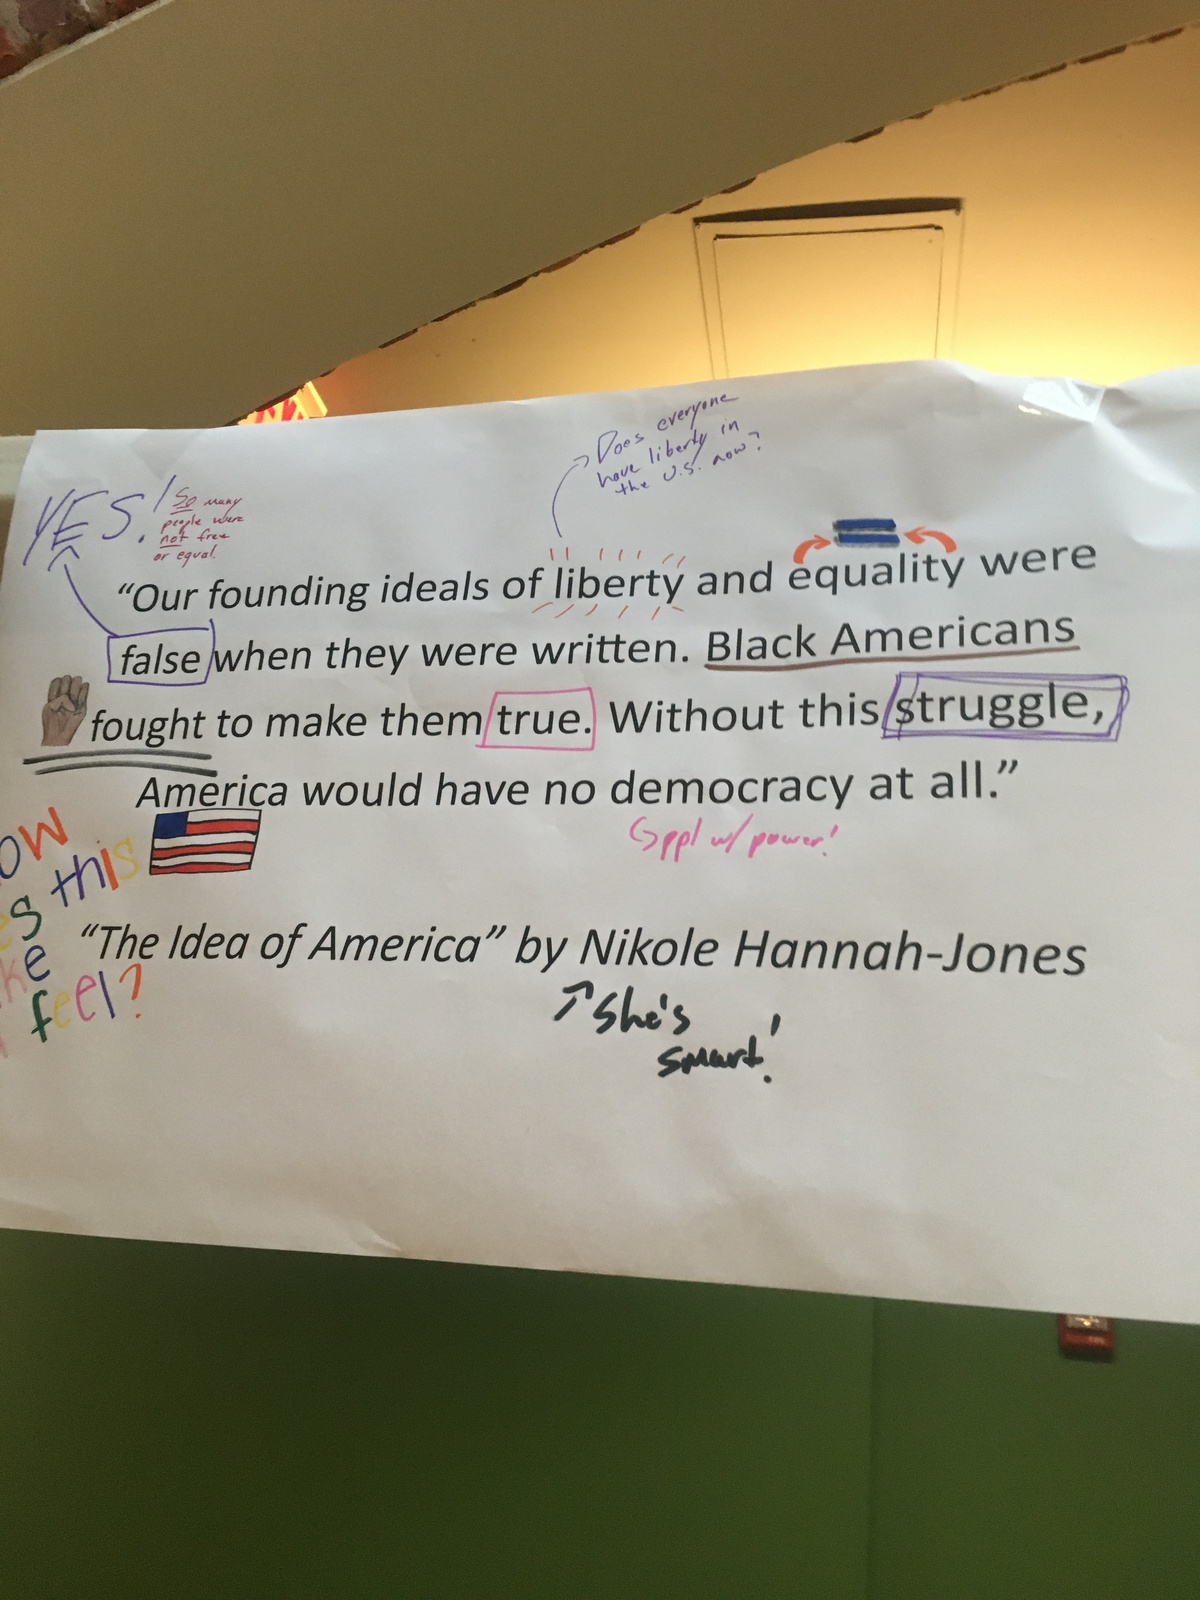 Does everyone
have liberty in
the U.S. now?
YES!
So many
people were
not free
or equal.
“Our founding ideals of liberty and equality were
false when they were written. Black Americans
fought to make them true. Without this struggle,
America would have no democracy at all.”
ppl w/ power!
ow
s this
ke
feel?
“The Idea of America” by Nikole Hannah-Jones
She's
smart!